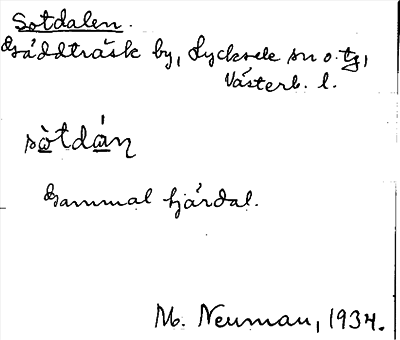 Sotdalen.
Gäddträsk by, Lycksele sn o. tg,
Västerb. l.
sòtdáṇ
Gammal tjärdal.
M. Neuman, 1934.